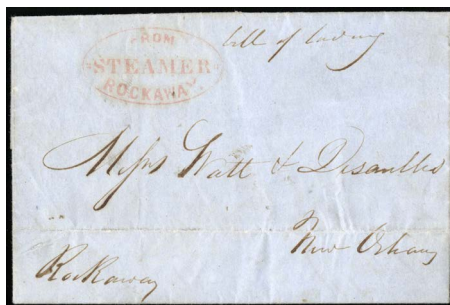 FROM
STEAMER
ROCKAWAY
bill of lading
Messrs Watt & Desaulles
New Orleans
Rockaway